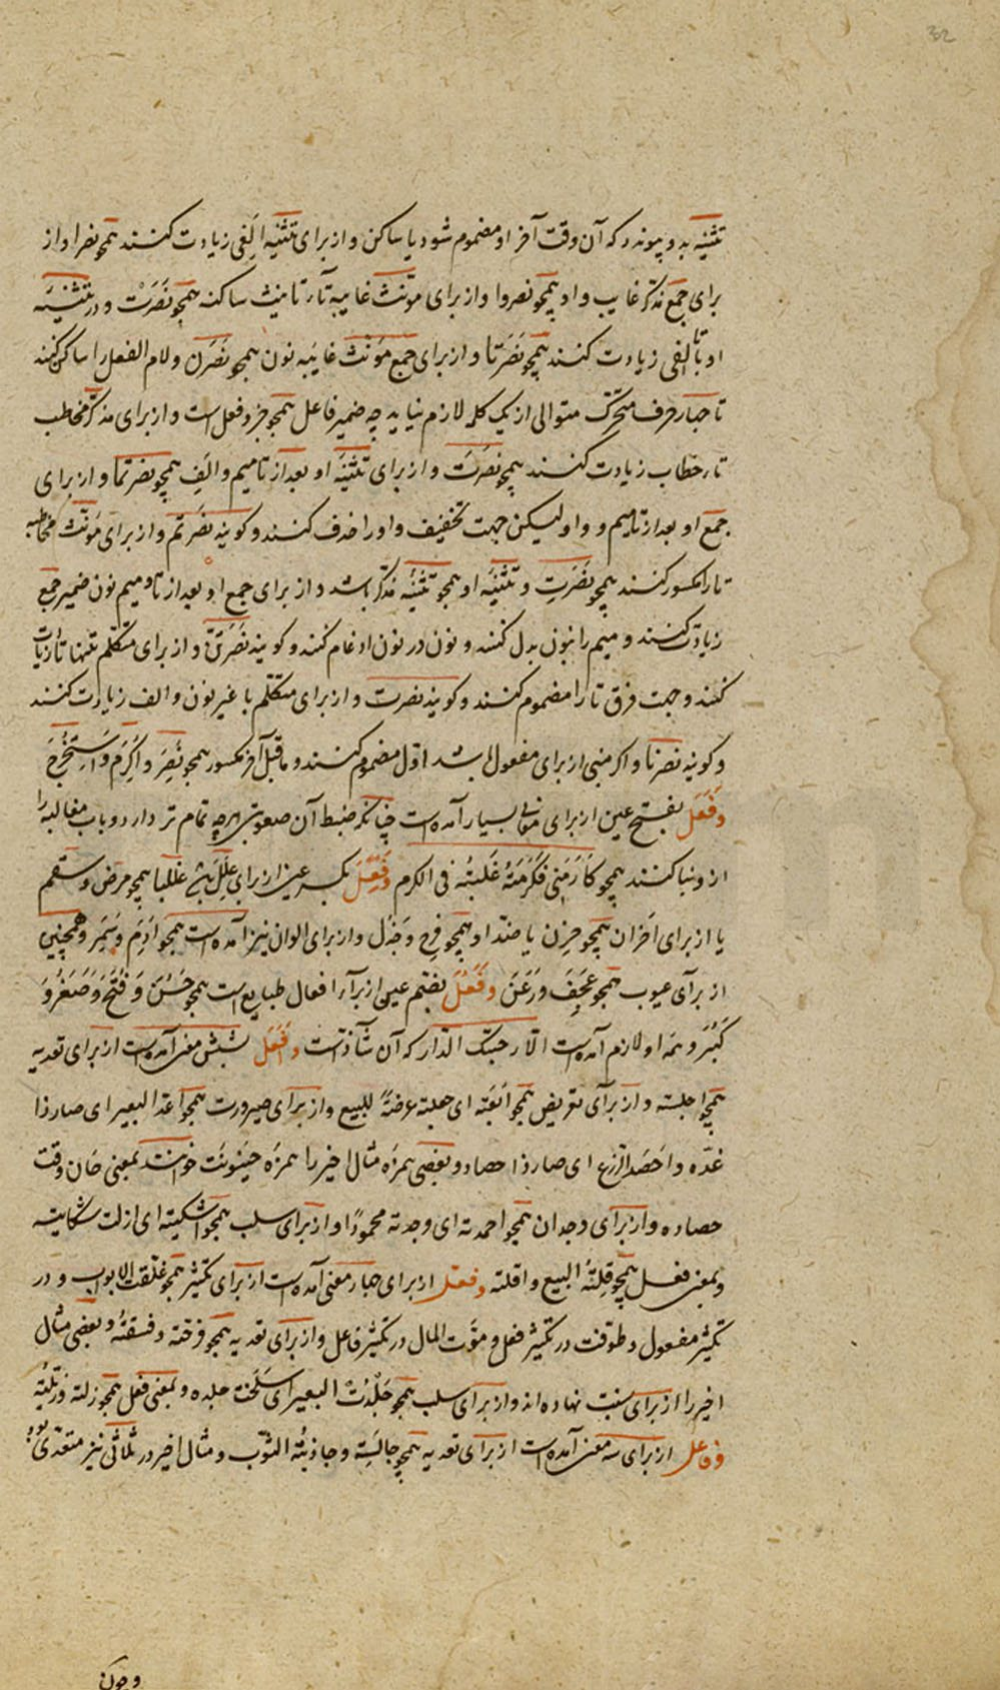 32
تثنیه بدو پیوندد که آن وقت آخر او مضموم شود یا ساکن و از برای تثنیه الفی زیادت کنند همچو نصرا و از
برای جمع مذکر غایب واو همچو نصروا و از برای مونث غایبه تاء تانیث ساکنه همچو نَصَرَتْ و در تثنیه
او با تا الفی زیادت کنند همچو نَصَرَتا و از برای جمع مؤنث غایبه نون همچو نَصَرْن و لام الفعل را ساکن کنند
تا چهار حرف متحرک متوالی از یک کلمه لازم نیاید چه ضمیر فاعل همچو جزو فعل است و از برای مذکر مخاطب
تاء خطاب زیادت کنند همچو نصَرْتَ و از برای تثنیه او بعد از تا میم و الف همچو نصرتما و از برای
جمع او بعد از تا میم و واو لیکن جهت تخفیف واو را حذف کنند و کویند نصَرتم و از برای مؤنث مخاطبه
تا را مکسور کنند همچو نصَرْتِ و تثنیه او همچو تثنیه مذکر باشد و از برای جمع او بعد از تا و میم نون ضمیر جمع
زیادت کنند و میم را بنون بدل کنند و نون در نون ادغام کنند و کویند نصَرتنّ و از برای متکلم تنها تا زیادت
کنند و جهت فرق تا را مضموم کنند و کویند نصرت و از برای متکلم با غیر نون و الف زیادت کنند
و کویند نصرنا و اکر مبنی از برای مفعول باشد اوّل مضموم کنند و ماقبل آخر مکسور همچو نُصِرَ و اُکْرِمَ و اُسْتُخْرِجَ
وفَعَلَ بفتح عین از برای معانی بسیار آمده است چنانکه ضبط آن صعوبتی هرچه تمام تر دارد و باب مغالبه را
ازو بنا کنند همچو کارَمَنی فکَرَمْتُهُ غَلَبتُه فی الکرم وفَعِلَ بکسر عین از برای عِلَل باشد غالبا همچو مرض و سقم
یا از برای احزان همچو حزن یا ضد او همچو فرح و جَذِل و از برای الوان نیز آمده است همچو اَدِمَ و سَمِرَ و همچنین
از برای عیوب همچو عَجِفَ و رَعَنَ وفَعُلَ بضم عین از برای افعال طبایع است همچو حَسُنَ و قَبُحَ و صَغُرَ و
کَبُرَ و همه او لازم آمده است الّا رحبتک الدار که آن شاذ است وافْعَلَ بشش معنی آمده است از برای تعدیه
همچو اجلسته و از برای تعریض همچو ابَعْته ای جعلته عرضةً للبیع و از برای صیرورت همچو اغدّ البعیر ای صار ذا
غدّه و احصَد الزرع ای صار ذا حصاد و بعضی همزه مثال اخیر را همزه حینونت خوانند بمعنی حان وقت
حصاده و از برای وجدان همچو احمدته ای وجدته محمودًا و از برای سلب همچو اشکیته ای ازلت شکایته
و بمعنی فعل همچو قِلتُه البیع و اقلته وفعّل از برای چهار معنی آمده است از برای تکثیر همچو غلّقت الابواب و در
تکثیر مفعول و طوّفت در تکثیر فعل و موّت المال در تکثیر فاعل و از برای تعدیه همچو فرّحته و فسقتهُ و بعضی مثال
اخیر را از برای نسبت نهاده اند و از برای سلب همچو جَلّدْتُ البعیر ای سلَختُ جلده و بمعنی فعل همچو زلته و زیّلته
وفاعل از برای سه معنی آمده است از برای تعدیه همچو جالسته و جاذبتُه الثوب و مثال اخیر در ثلاثی نیز متعدی بود
و چون